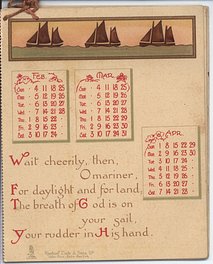 FEB.
Sun 4 11 18 25
Mon 5 12 19 26
Tue 6 13 20 27
Wed 7 14 21 28
Thu 1 8 15 22
Fri 2 9 16 23
Sat 3 10 17 24
MAR.
Sun 4 11 18 25
Mon 5 12 19 26
Tue 6 13 20 27
Wed 7 14 21 28
Thu 1 8 15 22 29
Fri 2 9 16 23 30
Sat 3 10 17 24 31
APR.
Sun 1 8 15 22 29
Mon 2 9 16 23 30
Tue 3 10 17 24
Wed 4 11 18 25
Thu 5 12 19 26
Fri 6 13 20 27
Sat 7 14 21 28
Wait cheerily, then,
O mariner,
For daylight and for land;
The breath of God is on
your sail,
Your rudder in His hand.
Raphael Tuck & Sons, Ld